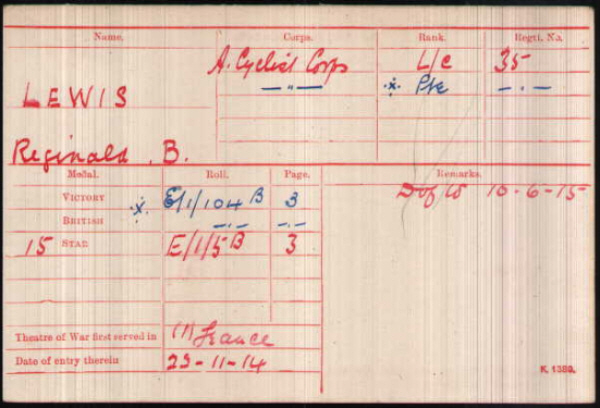 Name. Corps. Rank. Regtl. No.
A. Cyclist Corps L/C 35
LEWIS —"— * Pte —"—
Reginald . B.
Medal. Roll. Page. Remarks.
VICTORY * E/1/104 B 3 D of W 10-6-15
BRITISH —"— —"—
15 STAR E/1/5 B 3
Theatre of War first served in (1) France
Date of entry therein 23-11-14
K. 1380.